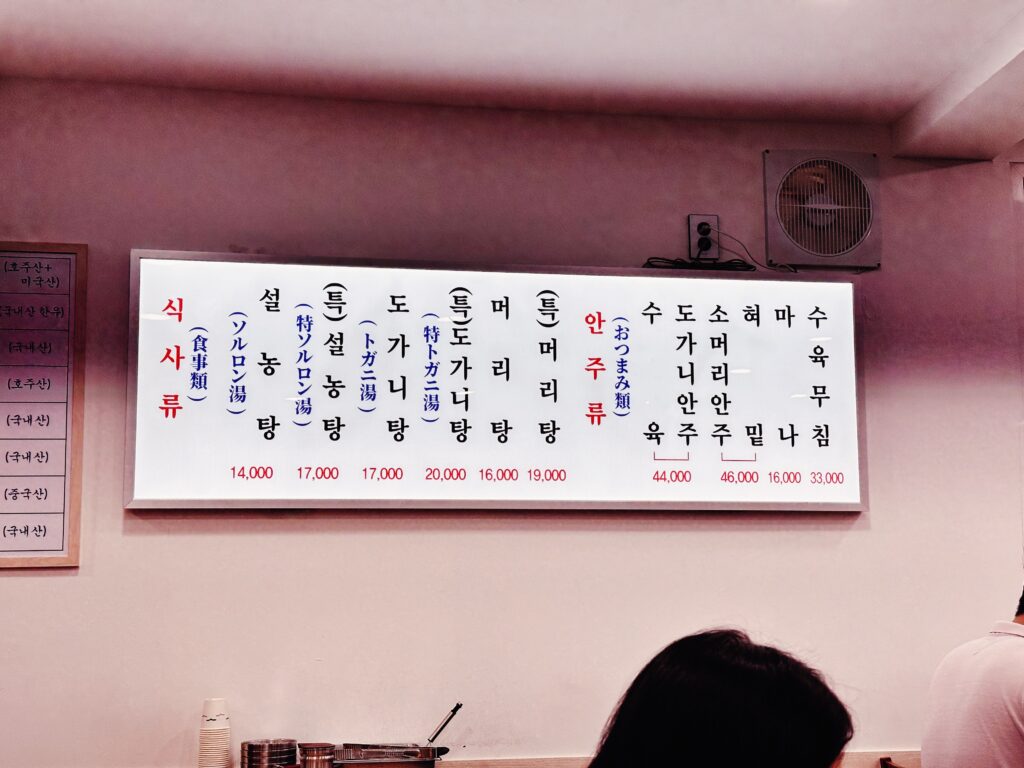 (호주산+
미국산)
(국내산 한우)
(국내산)
(호주산)
(국내산)
(국내산)
(중국산)
(국내산)
식사류
(食事類)
설농탕
(ソルロン湯)
14,000
(특)설농탕
(特ソルロン湯)
17,000
도가니탕
(トガニ湯)
17,000
(특)도가니탕
(特トガニ湯)
20,000
머리탕
16,000
(특)머리탕
19,000
안주류
(おつまみ類)
수육
도가니안주
44,000
소머리안주
혀밑
46,000
마나
16,000
수육무침
33,000